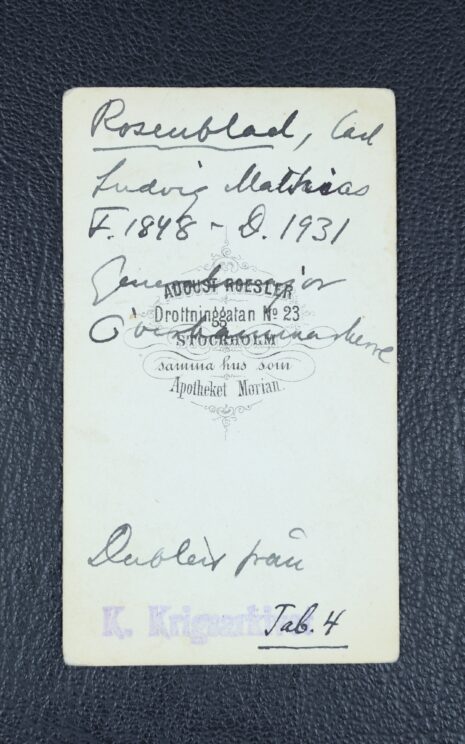 Rosenblad, Carl
Ludvig Mathias
F. 1848 - D. 1931
Generalmajor
AUGUST ROESLER
Drottninggatan No 23
Överkammarherre
STOCKHOLM
samma hus som
Apotheket Morian.
Dublett från
K. Krigsarkivet
Tab. 4